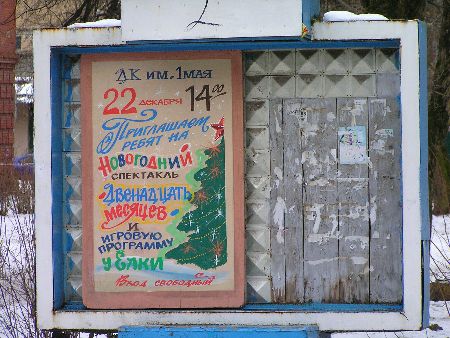 2
ДК им. 1 мая
22 декабря 14 00
Приглашаем
ребят на
Новогодний
спектакль
Двенадцать
месяцев
и
игровую
программу
у ёлки
Вход свободный